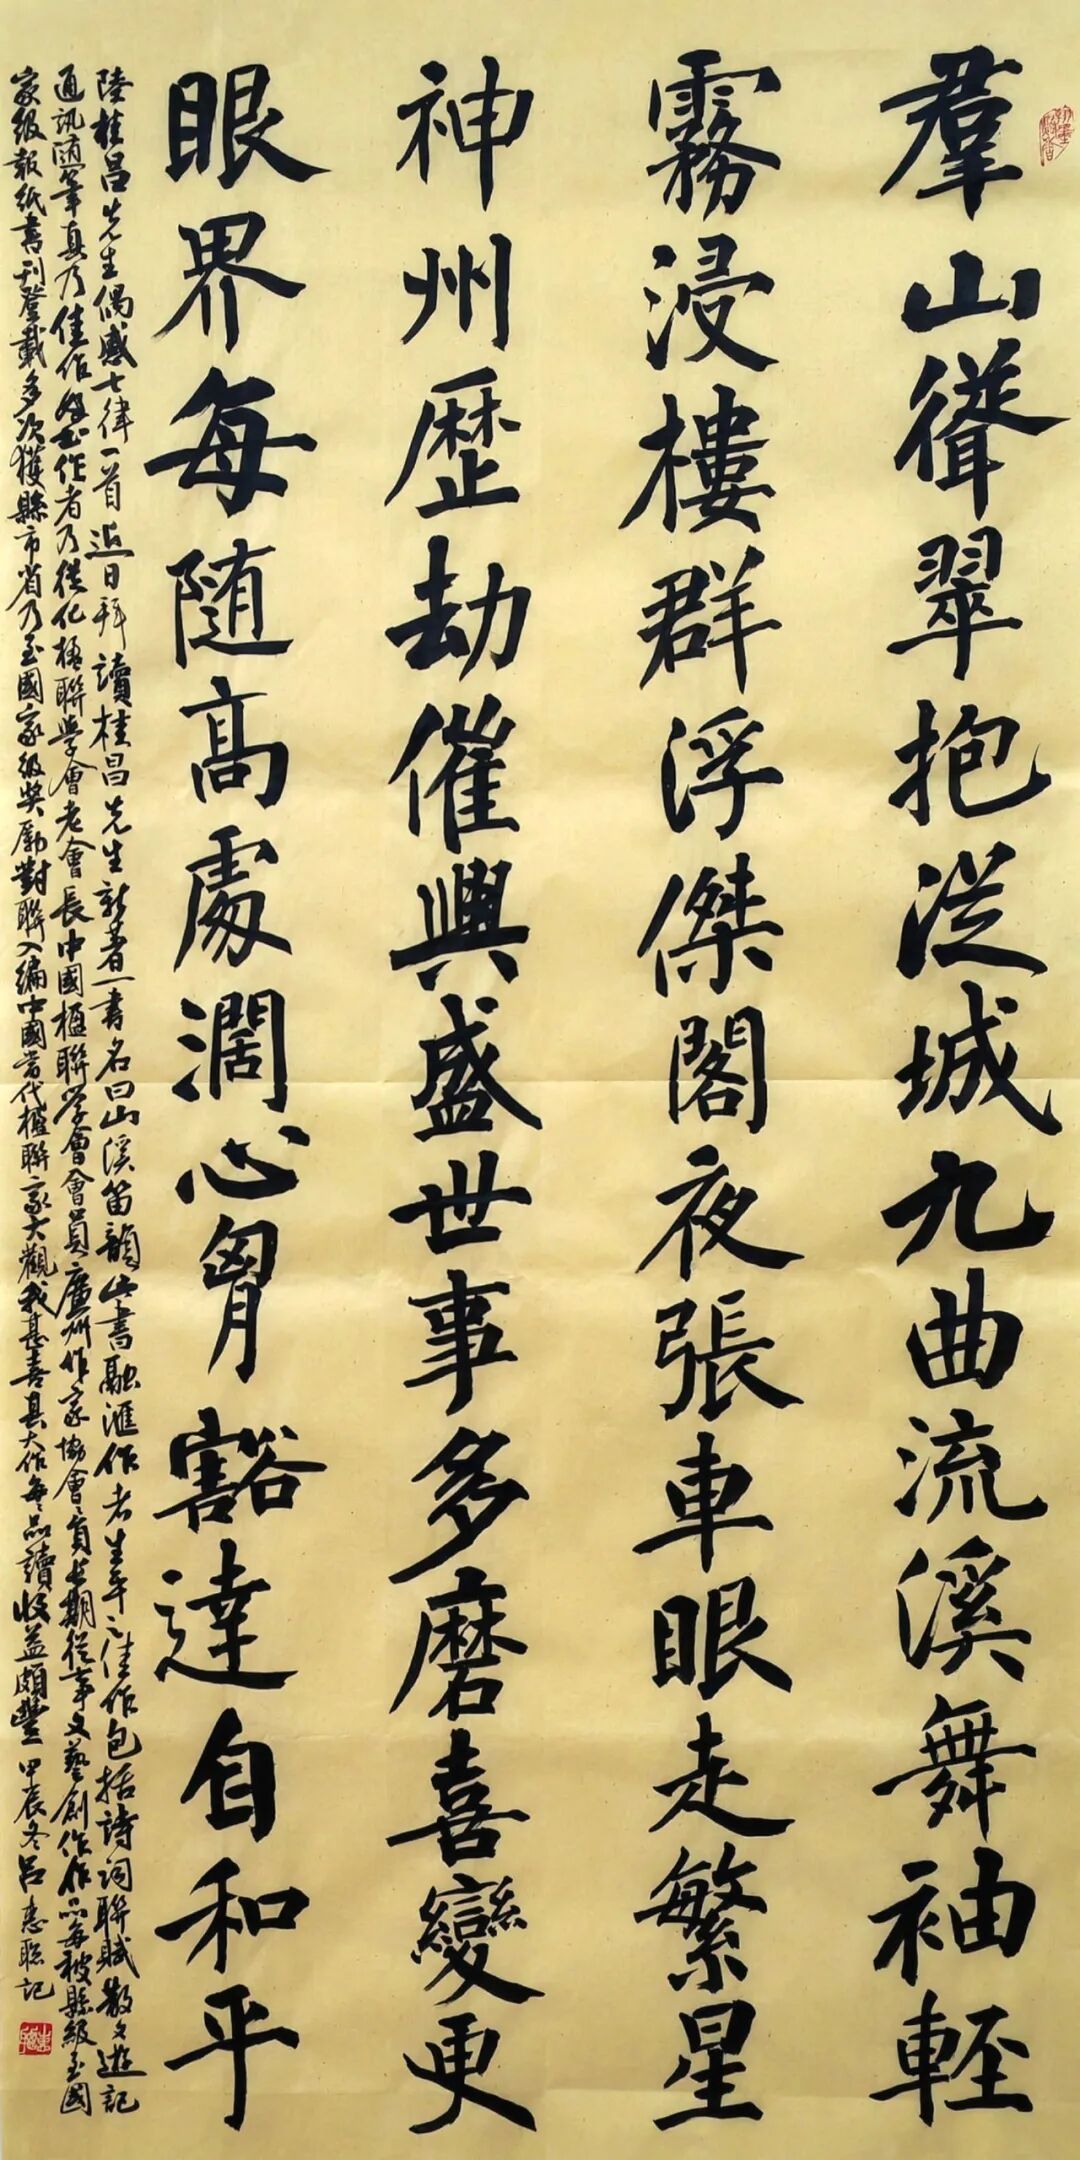 羣山聳翠抱從城九曲流溪舞袖輕
霧浸樓群浮傑閣夜張車眼走繁星
神州歷劫催興盛世事多磨喜變更
眼界每隨高處濶心胷豁達自和平
陸桂昌先生偶感七律一首近日拜讀桂昌先生新著一書名曰山溪笛韻此書融滙作者生平之佳作包括詩詞聯賦散文遊記
通訊隨筆真乃佳作作者乃從化楹聯學會老會長中國楹聯學會會員廣州作家協會會員長期從事文藝創作作品每被縣級至國
家級報紙書刊登載多次獲縣市省乃至國家級奬勵對聯入編中國當代楹聯家大觀我甚喜其大作每品讀收益頗豐 甲辰冬呂惠聰記